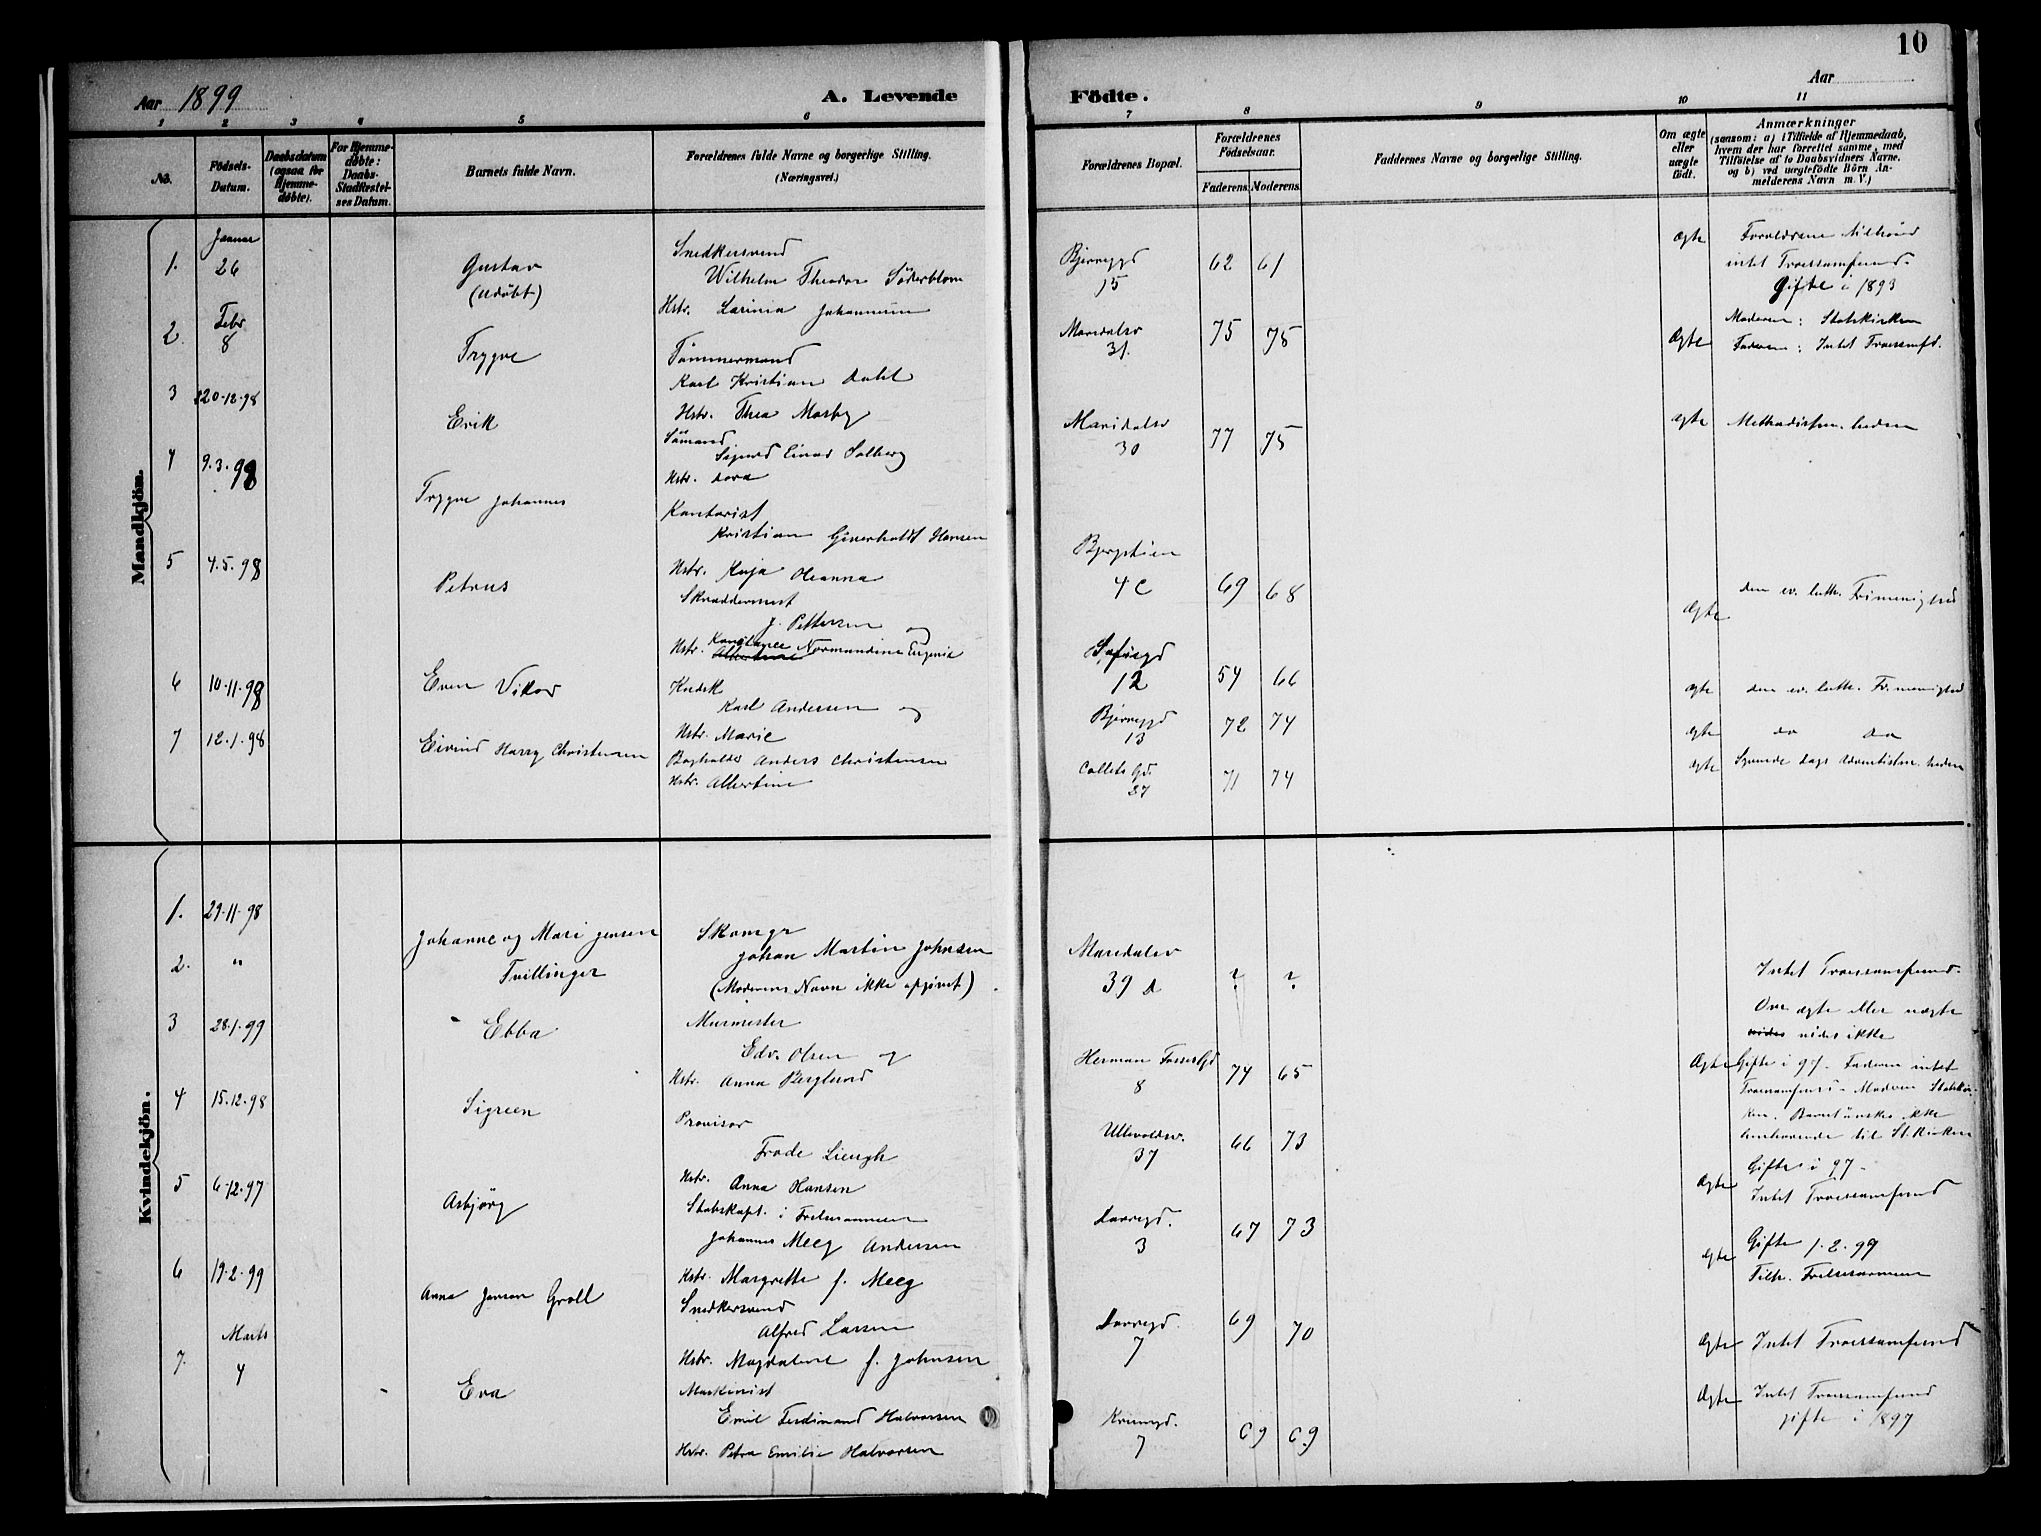 10
Aar 1899
A. Levende
Födte.
Aar
1 2 3 4 5 6
7 8 9 10 11
No.
Födsels-
Datum.
Daabsdatum
(ogsaa for
Hjemme-
döbte).
For Hjemme-
döbte:
Daabs-
Stadfæstel-
ses Datum.
Barnets fulde Navn.
Forældrenes fulde Navne og borgerlige Stilling.
(Næringsvei.)
Forældrenes Bopæl.
Forældrenes
Födselsaar.
Faderens. Moderens.
Faddernes Navne og borgerlige Stilling.
Om ægte
eller
uægte
födt.
Anmærkninger
(saasom: a) i Tilfælde af Hjemmedaab,
hvem der har forrettet samme, med
Tilföielse af to Daabsvidners Navne.
og b) ved uægtefödte Börn An-
melderens Navn m. V.)
Mandkjön.
1.
Januar
26
Gustav
(udöbt)
Snedkersvend
Wilhelm Theodor Söderblom
Hstr. Larinia Johannesen
Bjerregd
15
62 61
Ægte
Forældrene tilhörer
intet Troessamfund.
Gifte i 1893
2.
Febr
8
Trygve
Tömmermand
Karl Kristian Dahl
Hstr. Thea Mosby
Maridalsv
31.
75 75
Ægte
Moderen: Statskirken
Faderen: Intet Troessamfd.
3
20-12-98
Erik
Sömand
Sigurd Einar Solberg
Hstr. Dora
Maridalsv
30
77 75
Ægte
Methodistmenheden
4
9.3.98
Trygve Johannes
Kontorist
Kristian Giverholdt Hansen
Hstr. Kaja Oleanna
Bjergstien
4 C
69 68
Ægte
den ev. luth. Frimenighed
5
4.5.98
Petrus
Skræddermest
J. Pettersen og
Hstr. Konstance Normandine Eugenie
Albertine
Sofiesgd
12
54 66
Ægte
den ev. luth. Frimenighed
6
10-11-98
Even Viktor
Kudsk
Karl Andersen og
Hstr. Marie
Bjerregd
13
72 74
Ægte
do do
7
12.1.98
Eivind Harry Christensen
Bogholder Anders Christensen
Hstr. Albertine
Collets Gd.
27
71 74
Ægte
Syvende dags Adventistmenheden
Kvindekjön.
1.
29-11-98
Johanne og Mari Jensen
2.
"
Tvillinger
Skomgr
Johan Martin Johnsen
(Moderens Navn ikke opgivet)
Maridalsv
39 d
? ?
Intet Troessamfund.
Om ægte eller uægte
vides vides ikke
3
28.1.99
Ebba
Murmester
Edv. Olsen og
Hstr. Anna Berglund
Herman Fosses Gd
8
74 65
Ægte
Gifte i 97. Faderen intet
Troessamfund. Moderen Statskir-
ken. Barnet önskes ikke
henhörende til St. Kirken
4
15.12.98
Sigreen
Provisor
Frode Liengh
Hstr. Anna Hansen
Ullevoldsv.
37
66 73
Ægte
Gifte i 97.
Intet Troessamfund
5
6-12-97
Asbjörg
Stabskapt. i Frelsesarmeen
Johannes Meeg Andersen
Hstr. Margrethe f. Meeg
Darregd.
3
67 73
Ægte
Gifte 1.2.99
Tilh. Frelsesarmeen
6
19-2-99
Anna Jensen Groll
Snedkersvend
Alfred Larsen
Hstr. Magdalene f. Johnsen
Darregd.
7
69 70
Ægte
Intet Troessamfund
7.
Marts
4
Eva
Maskinist
Emil Ferdinand Halvorsen
Hstr. Petra Emilie Halvorsen
7
69 69
Ægte
Intet Troessamfund
gifte i 1897